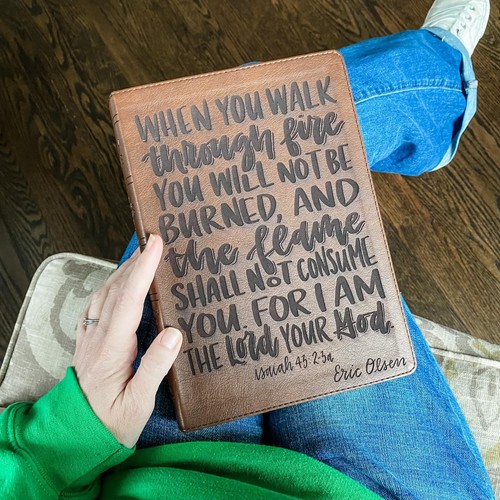 WHEN YOU WALK
through fire
YOU WILL NOT BE
BURNED, AND
the flame
SHALL NOT CONSUME
YOU. FOR I AM
THE Lord YOUR God.
Isaiah 43:2-3a
Eric Olsen